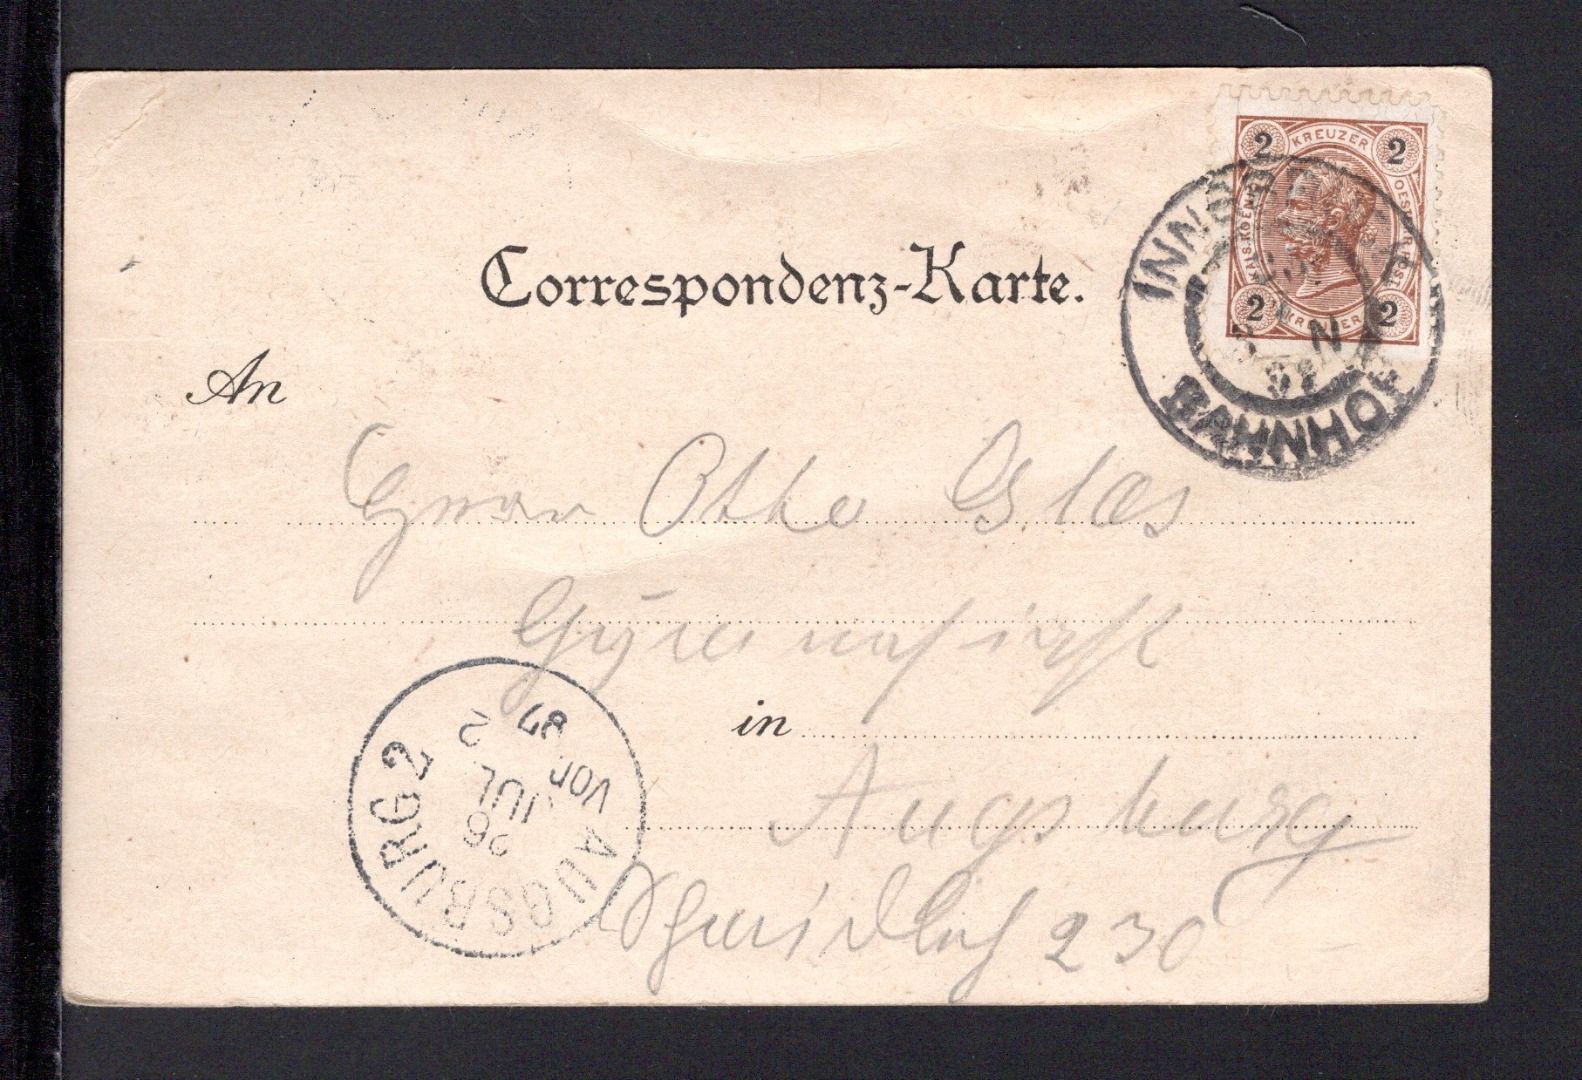 Correspondenz-Karte.
2 KREUZER 2
KAIS. KOENIGL. OESTERR. POST
2 KREUZER 2
INNSBRUCK
N
97
BAHNHOF
An
Herrn Otto Glas
in
Augsburg
230
AUGSBURG 2
26
JUL
VOR
97
2